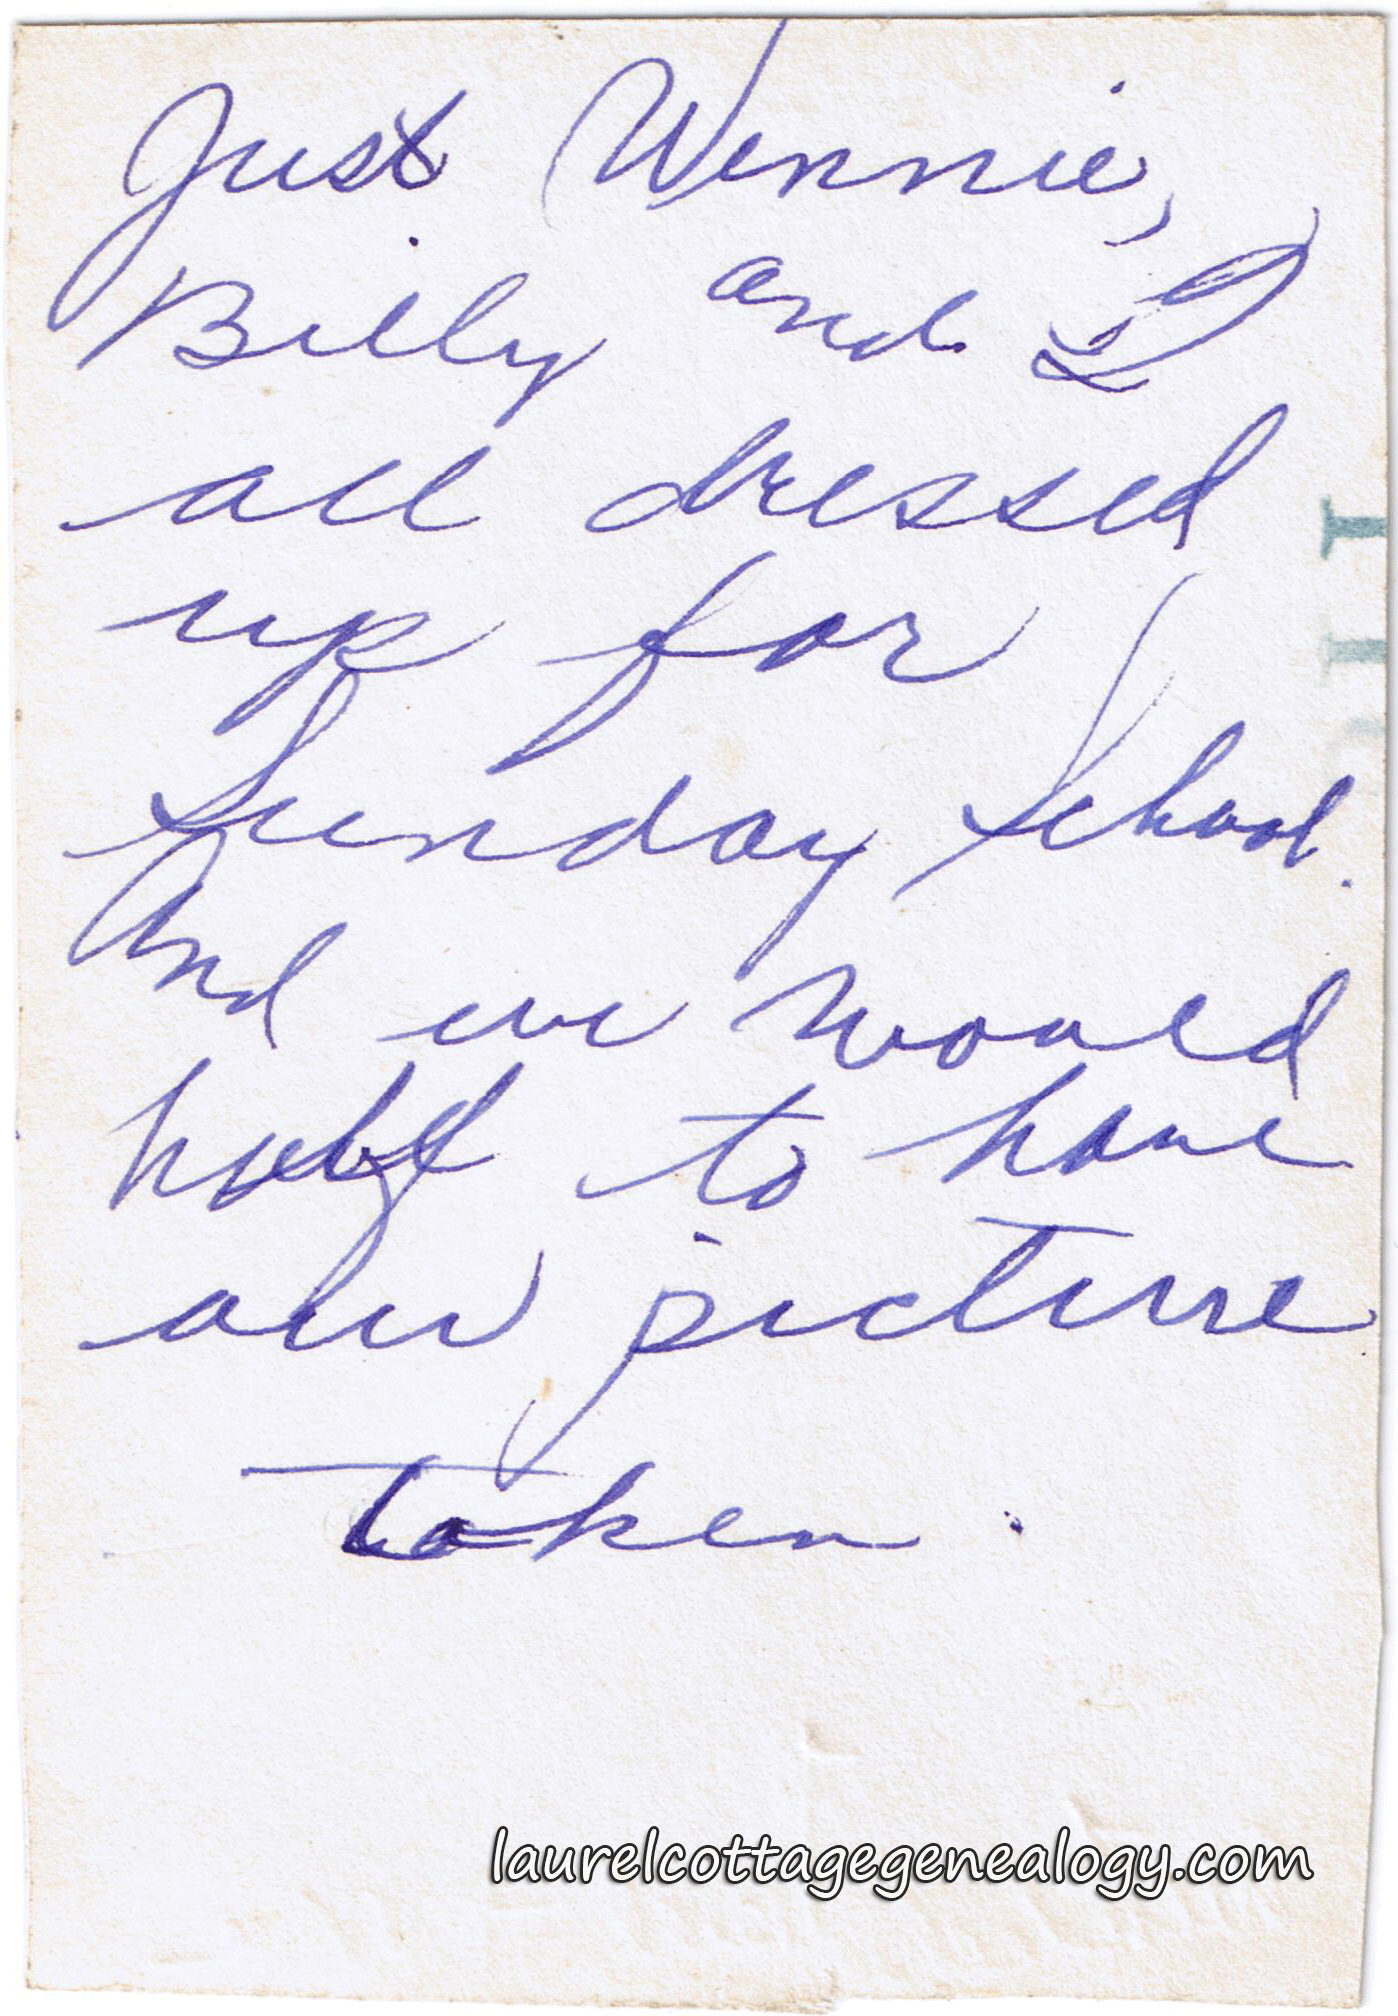 Just Wennie,
Billy and I
all dressed
up for
Sunday School.
And we would
half to have
our picture
taken.
laurelcottagegenealogy.com